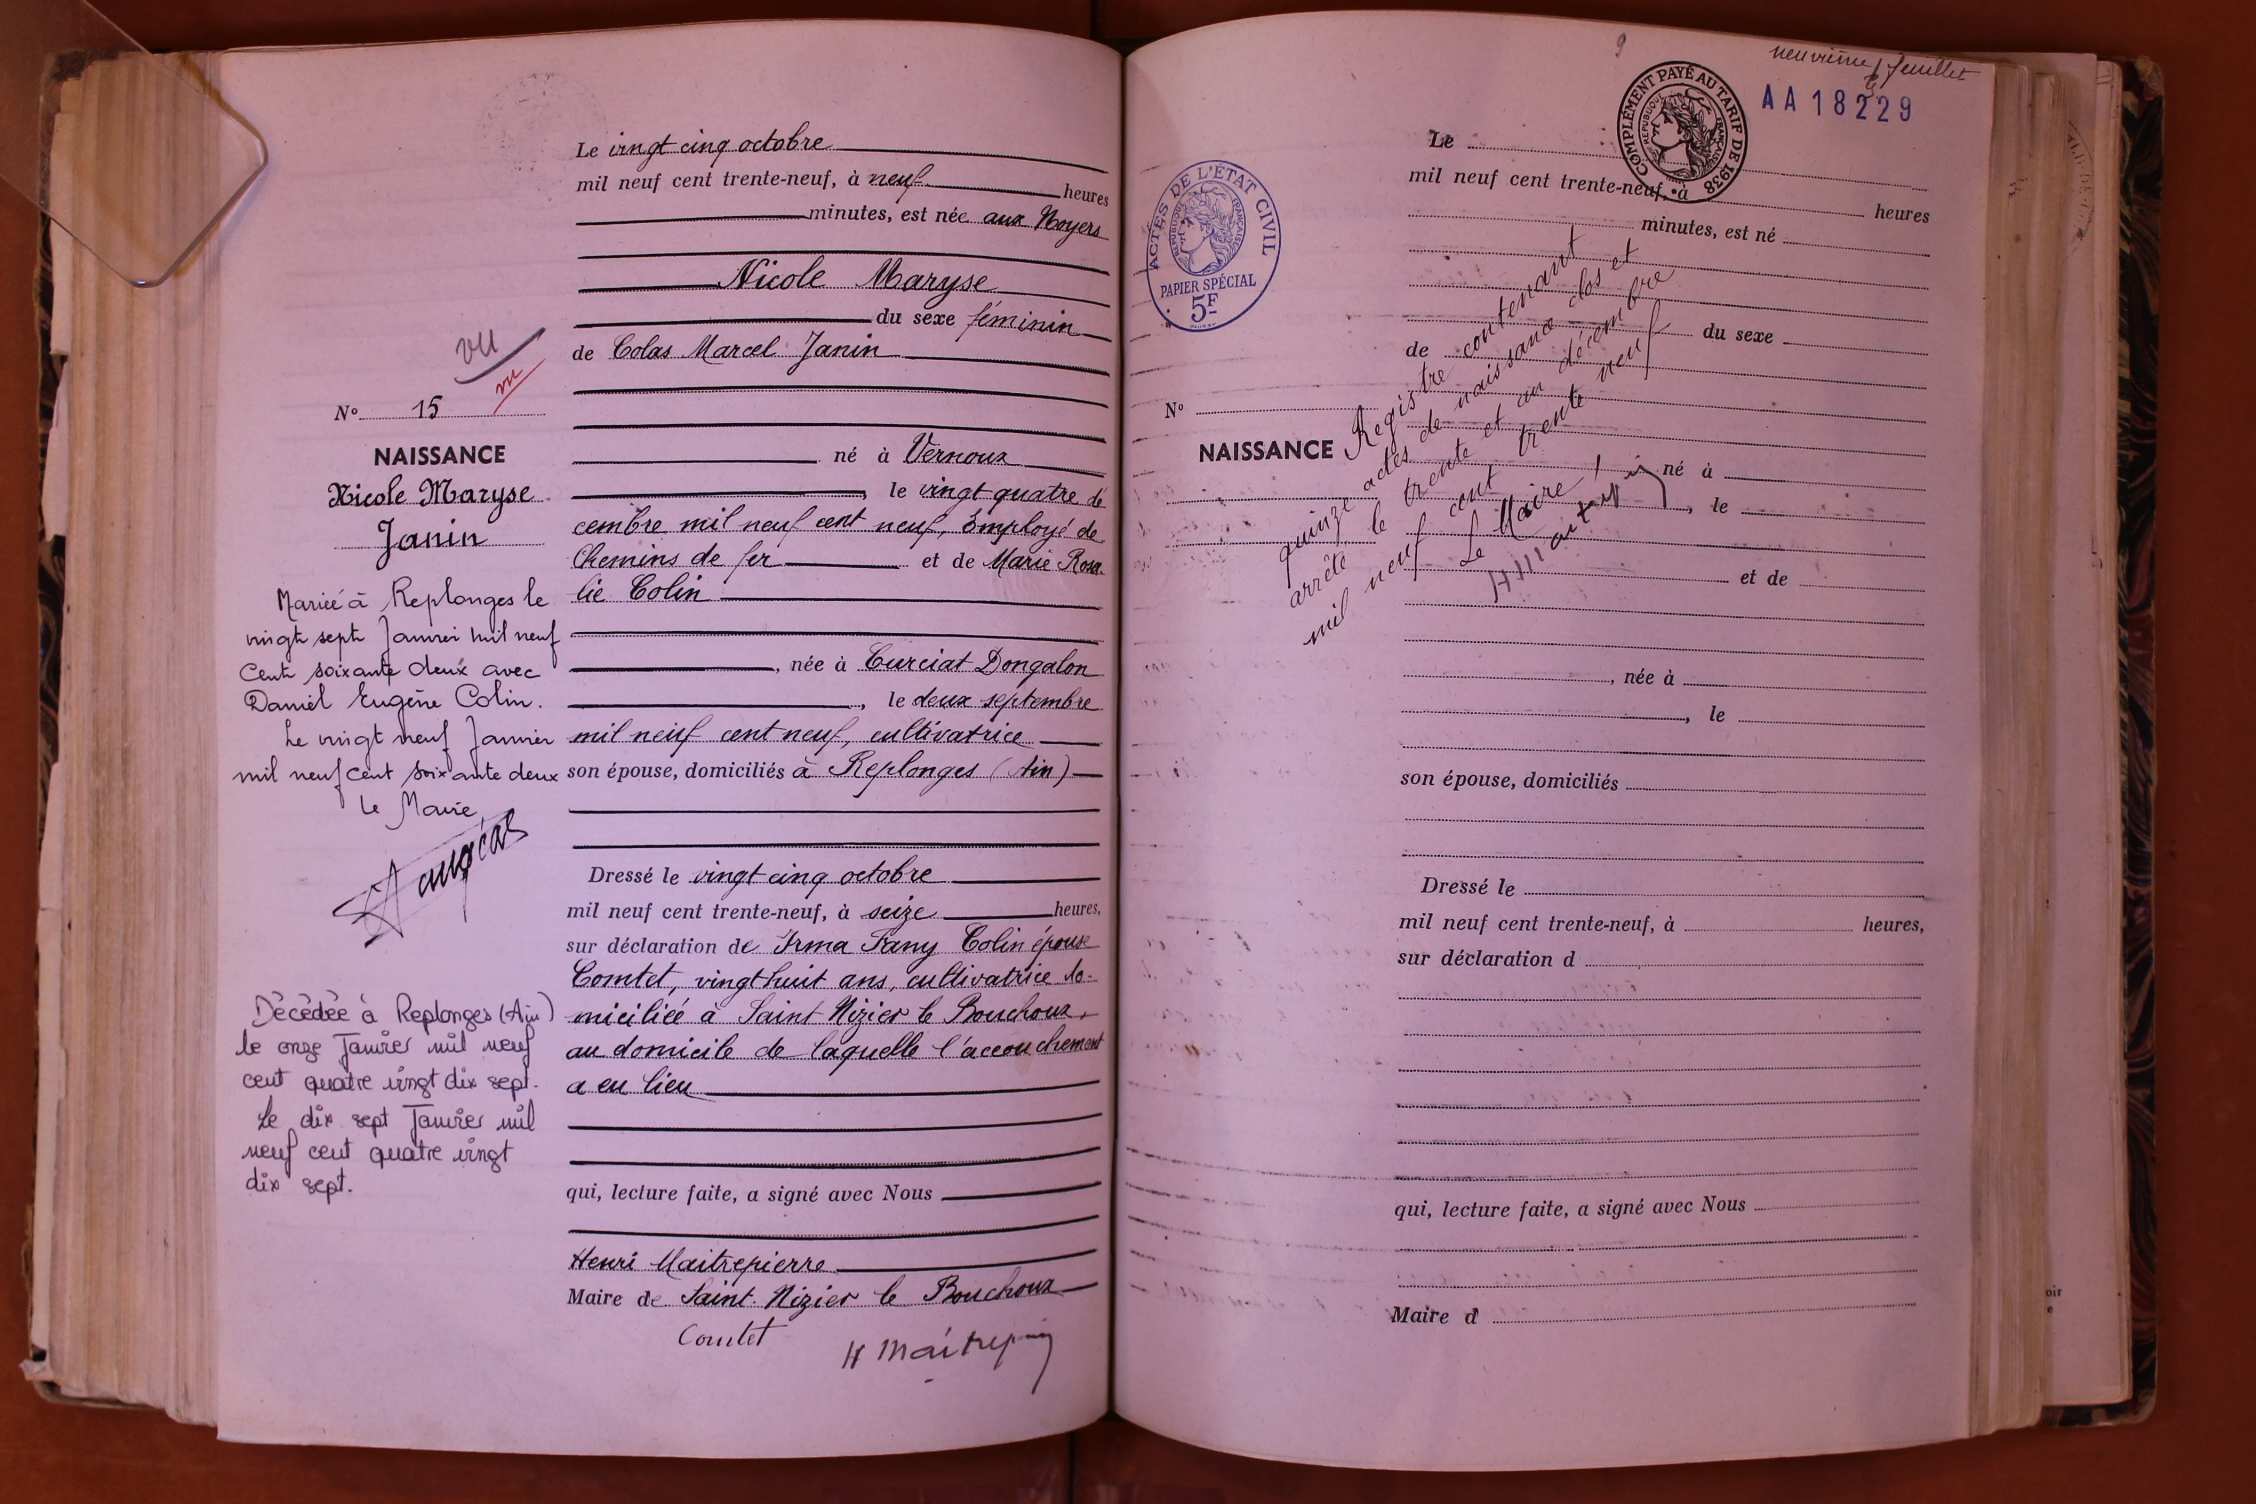 Le vingt cinq octobre
mil neuf cent trente-neuf, à neuf heures
minutes, est née aux Noyers
Nicole Maryse
du sexe féminin
de Colas Marcel Janin
né à Vernoux
, le vingt quatre dé
cembre mil neuf cent neuf, Employé de
Chemins de fer et de Marie Rosa-
lie Colin
, née à Curciat Dongalon
, le deux septembre
mil neuf cent neuf, cultivatrice
son épouse, domiciliés à Replonges (Ain)
Dressé le vingt cinq octobre
mil neuf cent trente-neuf, à seize heures,
sur déclaration de Irma Fany Colin épouse
Comtet, vingt huit ans, cultivatrice do-
miciliée à Saint Nizier le Bouchoux,
au domicile de laquelle l'accouchement
a eu lieu
qui, lecture faite, a signé avec Nous
Henri Maitrepierre
Maire de Saint-Nizier le Bouchoux
Comtet
H Maitrepierre
vu
vu
No 15
NAISSANCE
Nicole Maryse
Janin
Mariée à Replonges le
vingt sept Janvier mil neuf
Cent soixante deux avec
Daniel Eugène Colin.
Le vingt neuf Janvier
mil neuf cent soixante deux
Le Maire
Décédée à Replonges (Ain)
le onze Janvier mil neuf
cent quatre vingt dix sept.
Le dix sept Janvier mil
neuf cent quatre vingt
dix sept.
9
neuvième feuillet
AA 18229
COMPLÉMENT PAYÉ AU TARIF DE 1938
RÉPUBLIQUE FRANÇAISE
ACTES DE L'ÉTAT CIVIL
RÉPUBLIQUE FRANÇAISE
PAPIER SPÉCIAL
5F
Le
mil neuf cent trente-neuf, à heures
minutes, est né
du sexe
de
No
NAISSANCE
né à
, le
et de
, née à
, le
son épouse, domiciliés
Dressé le
mil neuf cent trente-neuf, à heures,
sur déclaration d
qui, lecture faite, a signé avec Nous
Maire d
Registre contenant
quinze actes de naissance clos et
arrêté le trente et un décembre
mil neuf cent trente neuf
Le Maire
H Maitrepierre
oir
e